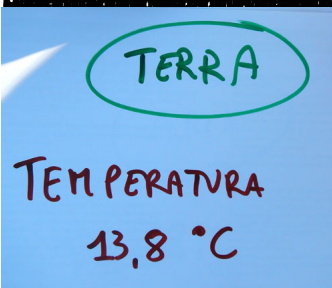 TERRA
TEMPERATURA
13,8 °C